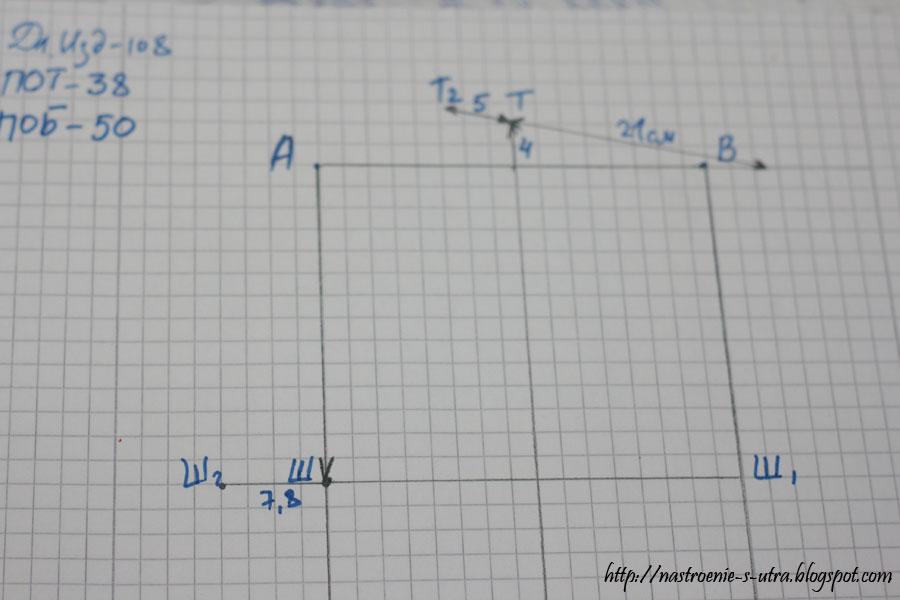 Дл. Изд-108
ПОТ-38
ПОБ-50
Т2 5 Т
21см
4
А
В
Ш2
Ш
Ш1
7,8
http://nastroenie-s-utra.blogspot.com